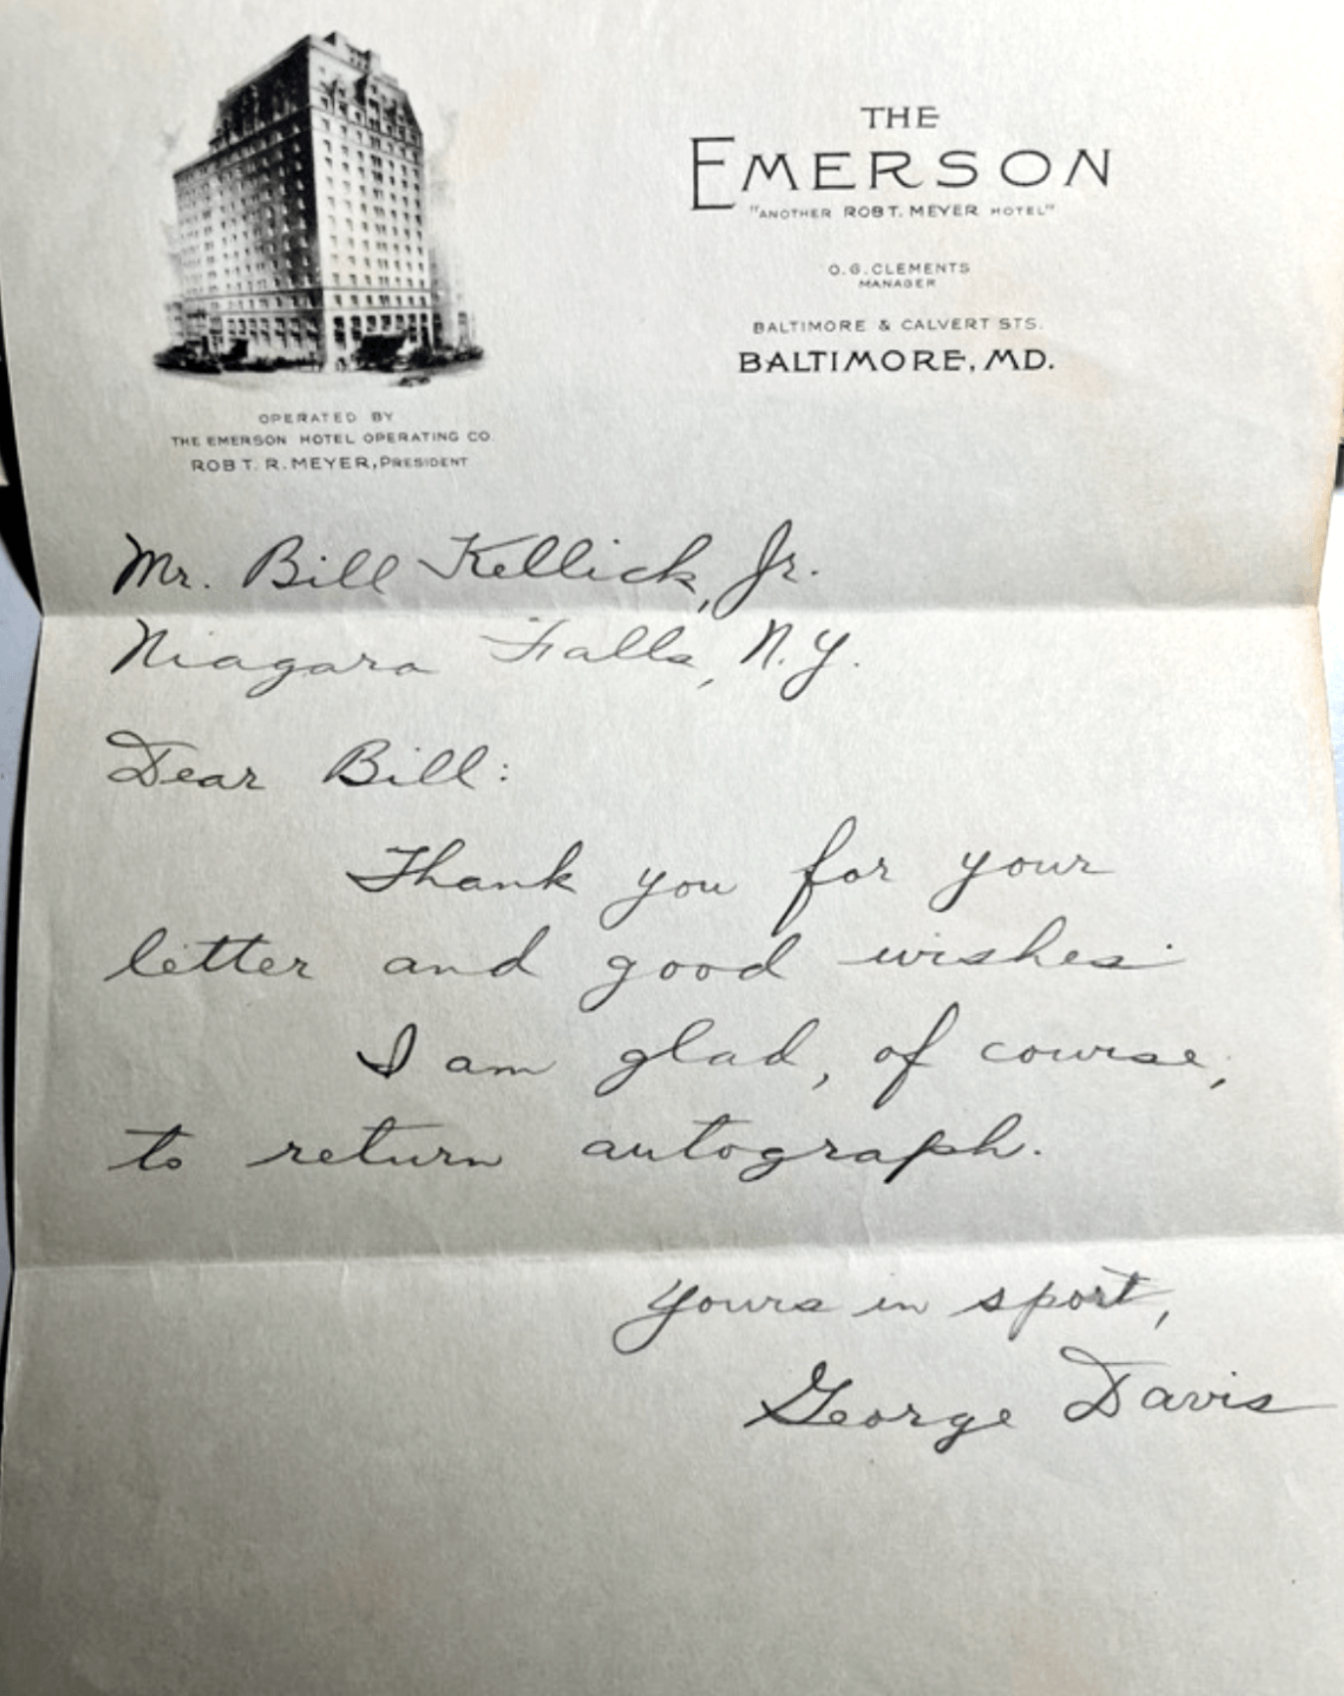 THE
EMERSON
"ANOTHER ROBT. MEYER HOTEL"
O.G. CLEMENTS
MANAGER
BALTIMORE & CALVERT STS.
BALTIMORE, MD.
OPERATED BY
THE EMERSON HOTEL OPERATING CO.
ROBT. R. MEYER, PRESIDENT
Mr. Bill Kellick, Jr.
Niagara Falls, N.Y.
Dear Bill:
Thank you for your
letter and good wishes.
I am glad, of course,
to return autograph.
Yours in sport,
George Davis